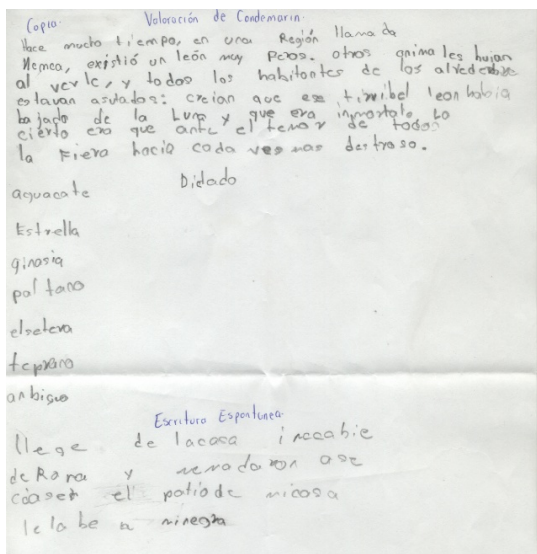 Copia. Valoración de Condemarín.
Hace mucho tiempo, en una Región llamada
Nemea, existió un león muy peros. otros animales huian
al verle, y todos los habitantes de los alrededore
estavan asutados: creian que ese tirribel leon habia
bajado de la Luna y que era inmortale Lo
cierto era que ante el temor de todos
la Fiera hacia cada ves mas destroso.
Dictado
aguacate
Estrella
ginasia
paltano
elsetera
temprano
anbiguo
Escritura Espontunea
llege de lacasa icacabie
de Rona y nenadaron ase
coaser el patiode micasa
lelabe a minegra